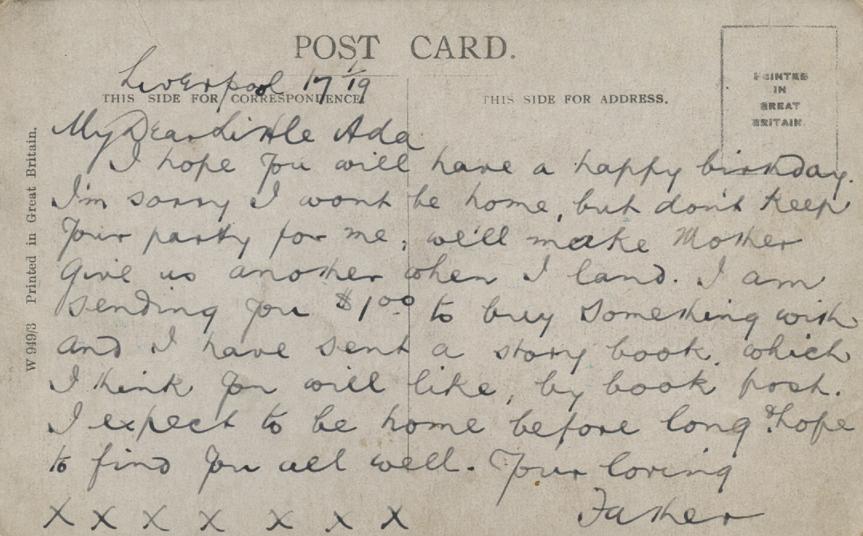 POST CARD.
Liverpool 17/1/19
THIS SIDE FOR CORRESPONDENCE
THIS SIDE FOR ADDRESS.
PRINTED
IN
GREAT
BRITAIN.
W 949/3 Printed in Great Britain.
My Dear Little Ada
I hope you will have a happy birthday.
I'm sorry I wont be home, but don't keep
your party for me, we'll make Mother
give us another when I land. I am
sending you $1.00 to buy something with
and I have sent a story book, which
I think you will like, by book post.
I expect to be home before long & hope
to find you all well. Your loving
X X X X X X X Father